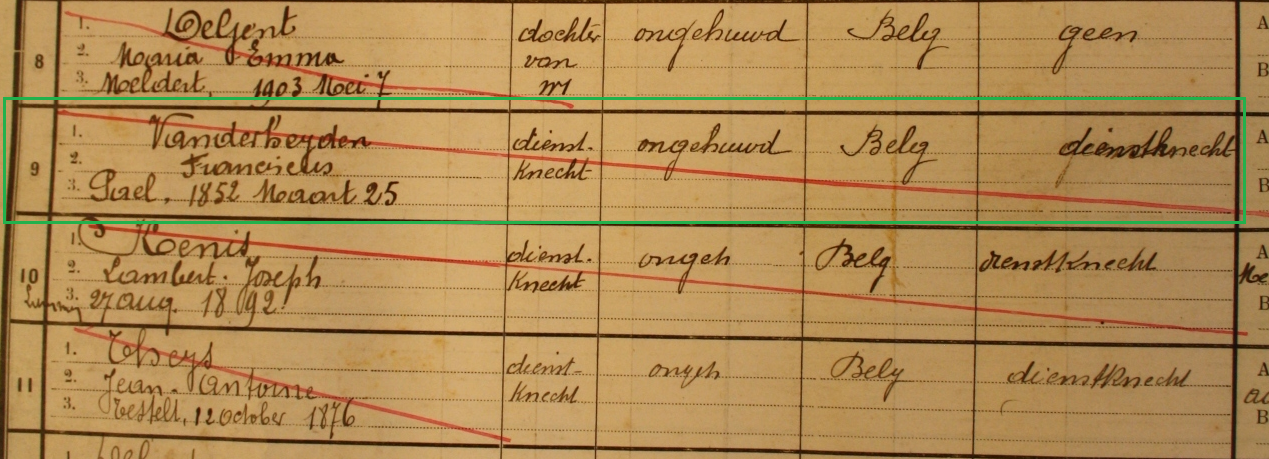 8 1. Delgent dochter ongehuwd Belg geen A
2. Maria Emma van
3. Meldert, 1903 Mei 7 nr1 B
9 1. Vanderheyden dienst- ongehuwd Belg dienstknecht A
2. Franciscus knecht
3. Pael, 1852 Maart 25 B
10 1. Kenis dienst- ongeh Belg dienstknecht A
2. Lambert Joseph knecht
3. 27 aug. 1892 B
11 1. Theys dienst- ongeh Belg dienstknecht A
2. Jean-Antoine knecht
3. Testelt, 12 October 1876 B
1.